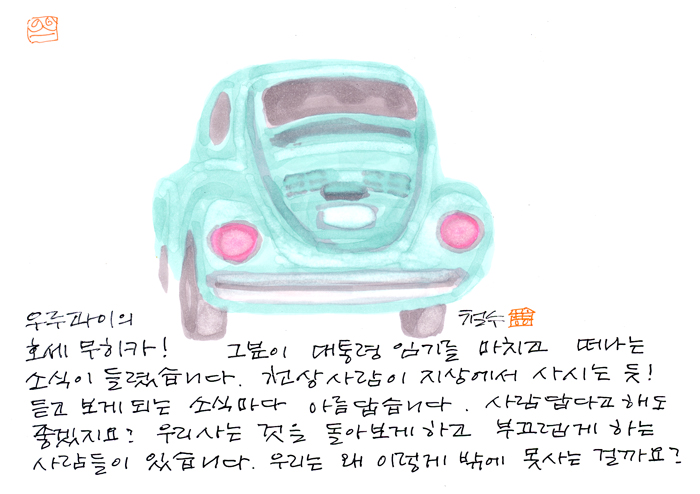 우루과이의
철수
호세 무히카! 그분이 대통령 임기를 마치고 떠나는
소식이 들렸습니다. 천상사람이 지상에서 사시는 듯!
듣고 보게 되는 소식마다 아름답습니다. 사람답다고 해도
좋겠지요? 우리사는 것을 돌아보게 하고 부끄럽게 하는
사람들이 있습니다. 우리는 왜 이렇게 밖에 못사는 걸까요?